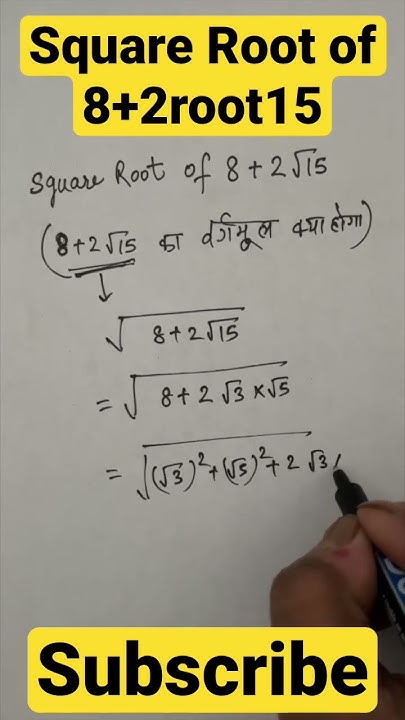 Square Root of
8+2root15
Square Root of 8 + 2√15
(8+2√15 का वर्गमूल क्या होगा)
√(8+2√15)
= √(8+2√3×√5)
= √((√3)²+(√5)²+2√3
Subscribe